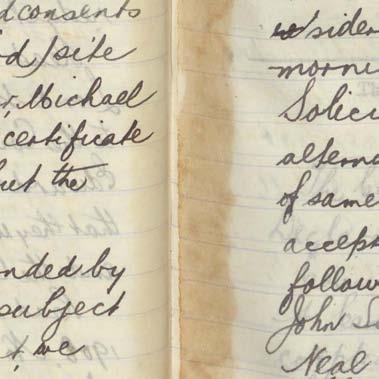 d consents
d / site
r, Michael
certificate
but the
nded by
subject
t, we
sider
morni
Solici
alterna
of same
accept
follow
John S
Neal